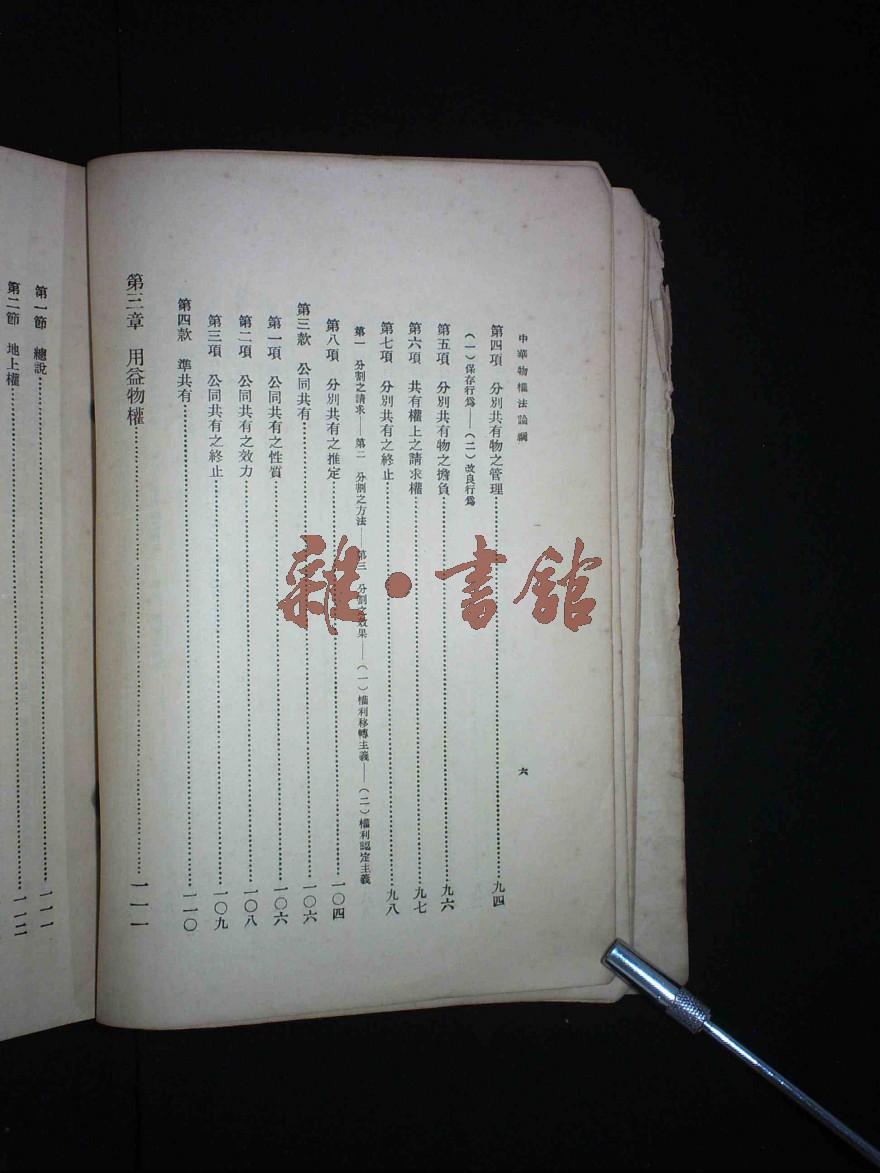 中華物權法論綱
六
第四項 分別共有物之管理……九四
（一）保存行爲——（二）改良行爲
第五項 分別共有物之擔負……九六
第六項 共有權上之請求權……九七
第七項 分別共有之終止……九八
第一 分割之請求——第二 分割之方法——第三 分割之效果——（一）權利移轉主義——（二）權利認定主義
第八項 分別共有之推定……一〇四
第三款 公同共有……一〇六
第一項 公同共有之性質……一〇六
第二項 公同共有之效力……一〇八
第三項 公同共有之終止……一〇九
第四款 準共有……一一〇
第三章 用益物權……一一一
第一節 總說……一一一
第二節 地上權……一一二
雜·書館